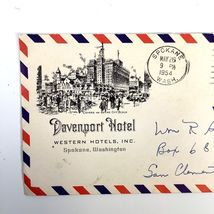 SPOKANE
MAY 19
9 PM
1954
WASH.
Davenport Hotel
WESTERN HOTELS, INC.
Spokane, Washington
Wm R
Box 6
San Clemen